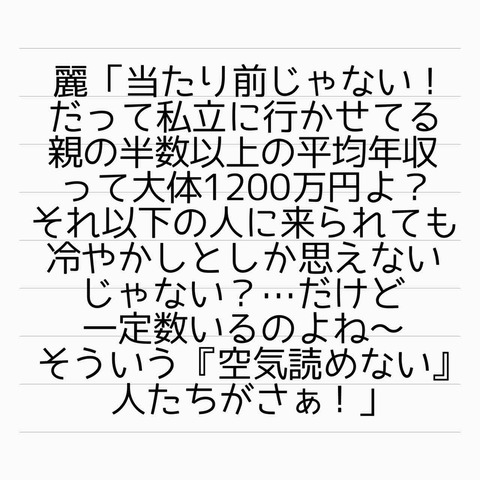 麗「当たり前じゃない！
だって私立に行かせてる
親の半数以上の平均年収
って大体1200万円よ？
それ以下の人に来られても
冷やかしとしか思えない
じゃない？…だけど
一定数いるのよね〜
そういう『空気読めない』
人たちがさぁ！」